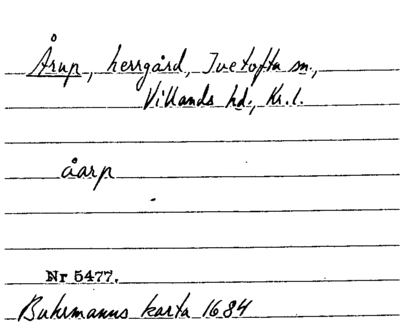 Årup, herrgård, Ivetofta sn.,
Villands hd., Kr.l.
åarp
Nr 5477.
Buhrmanns karta 1684